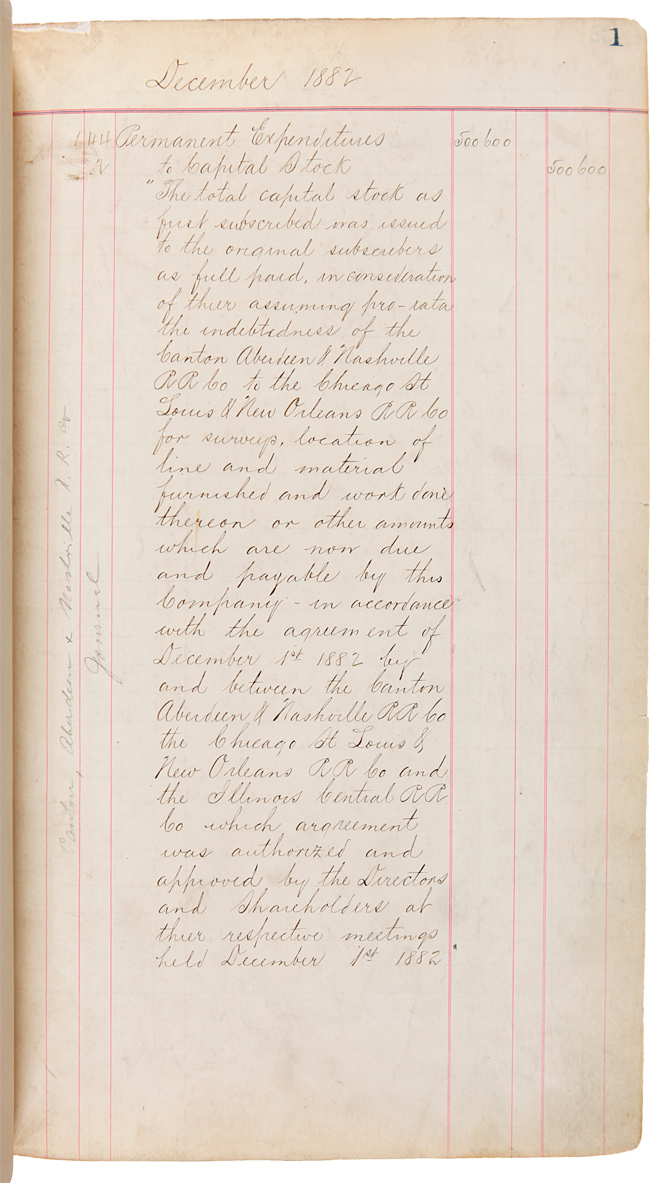 1
December 1882
1 44 Permanent Expenditures 500 600
2 to Capital Stock 500 600
"The total capital stock as
first subscribed was issued
to the original subscribers
as full paid, in consideration
of thier assuming pro-rata
the indebtedness of the
Canton Aberdeen & Nashville
RR Co to the Chicago St
Louis & New Orleans RR Co
for surveys, location of
line and material
furnished and work done
thereon or other amounts
which are now due
and payable by this
Company - in accordance
with the agreement of
December 1st 1882 by
and between the Canton
Aberdeen & Nashville RR Co
the Chicago St Louis &
New Orleans RR Co and
the Illinois Central RR
Co which argreement
was authorized and
approved by the Directors
and Shareholders at
thier respective meetings
held December 1st 1882
Canton, Aberdeen & Nashville R. R. Co
Journal